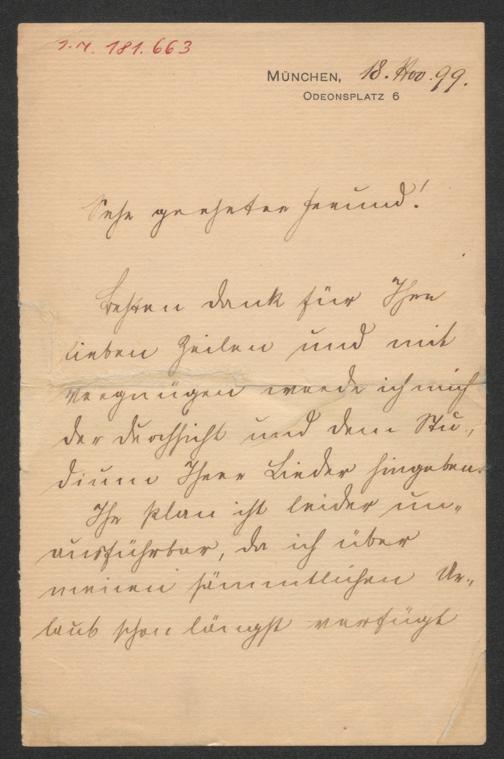 I.N. 181.663
MÜNCHEN, 18. Nov. 99.
ODEONSPLATZ 6
Sehr geehrter Freund!
Besten Dank für Ihre
lieben Zeilen und mit
Vergnügen werde ich mich
der Durchsicht und dem Stu-
dium Ihrer Lieder hingeben.
Ihr Plan ist leider un-
ausführbar, da ich über
meinen sämmtlichen Ur-
laub schon längst verfügt